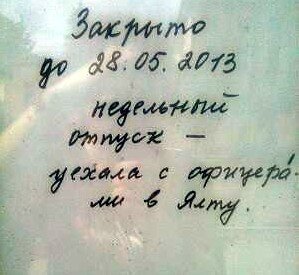 Закрыто
до 28.05.2013
недельный
отпуск –
уехала с офицера́-
ми в Ялту.